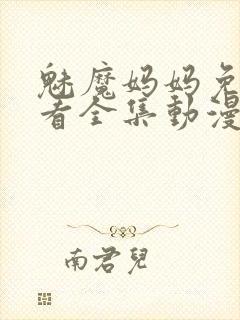 魅魔妈妈免
看全集動漫
南君兒